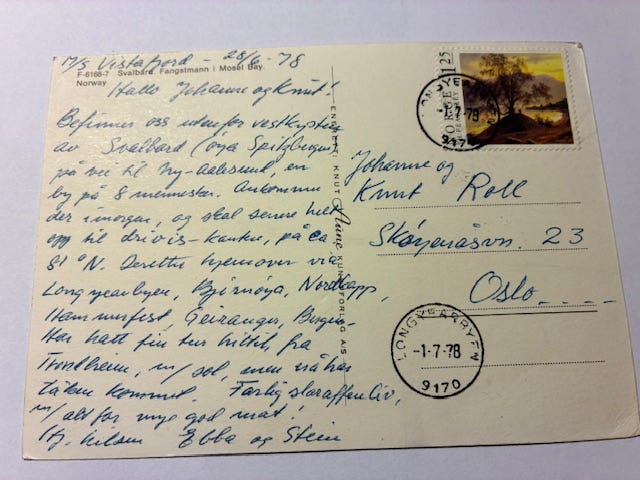 M/S Vistafjord - 28/6-78
F-6168-7 Svalbard. Fangstmann i Mosel Bay
Norway
Hallo Johanne og Knut!
Befinner oss utenfor vestkysten
av Svalbard (øya Spitzbergen)
på vei til Ny-Aalesund, en
by på 8 mennesker. Ankommer
der i morgen, og skal senere helt
opp til drivis-kanten, på ca
81 °N. Deretter hjemover via
Longyearbyen, Bjørnøya, Nordkapp,
Hammerfest, Geiranger, Bergen.
Har hatt fin tur hittil, fra
Trondheim, m/sol, men nå har
tåken kommet. Farlig slaraffenliv,
m/ alt for mye god mat!
Hj. hilsen Ebba og Stein
ENERETT: KNUT Aune KUNSTFORLAG A/S
NORGE 125
LONGYEARBYEN
-1-7-78
917
Johanne og
Knut Roll
Skøyenåsvn. 23
Oslo
LONGYEARBYEN
-1-7-78
9170